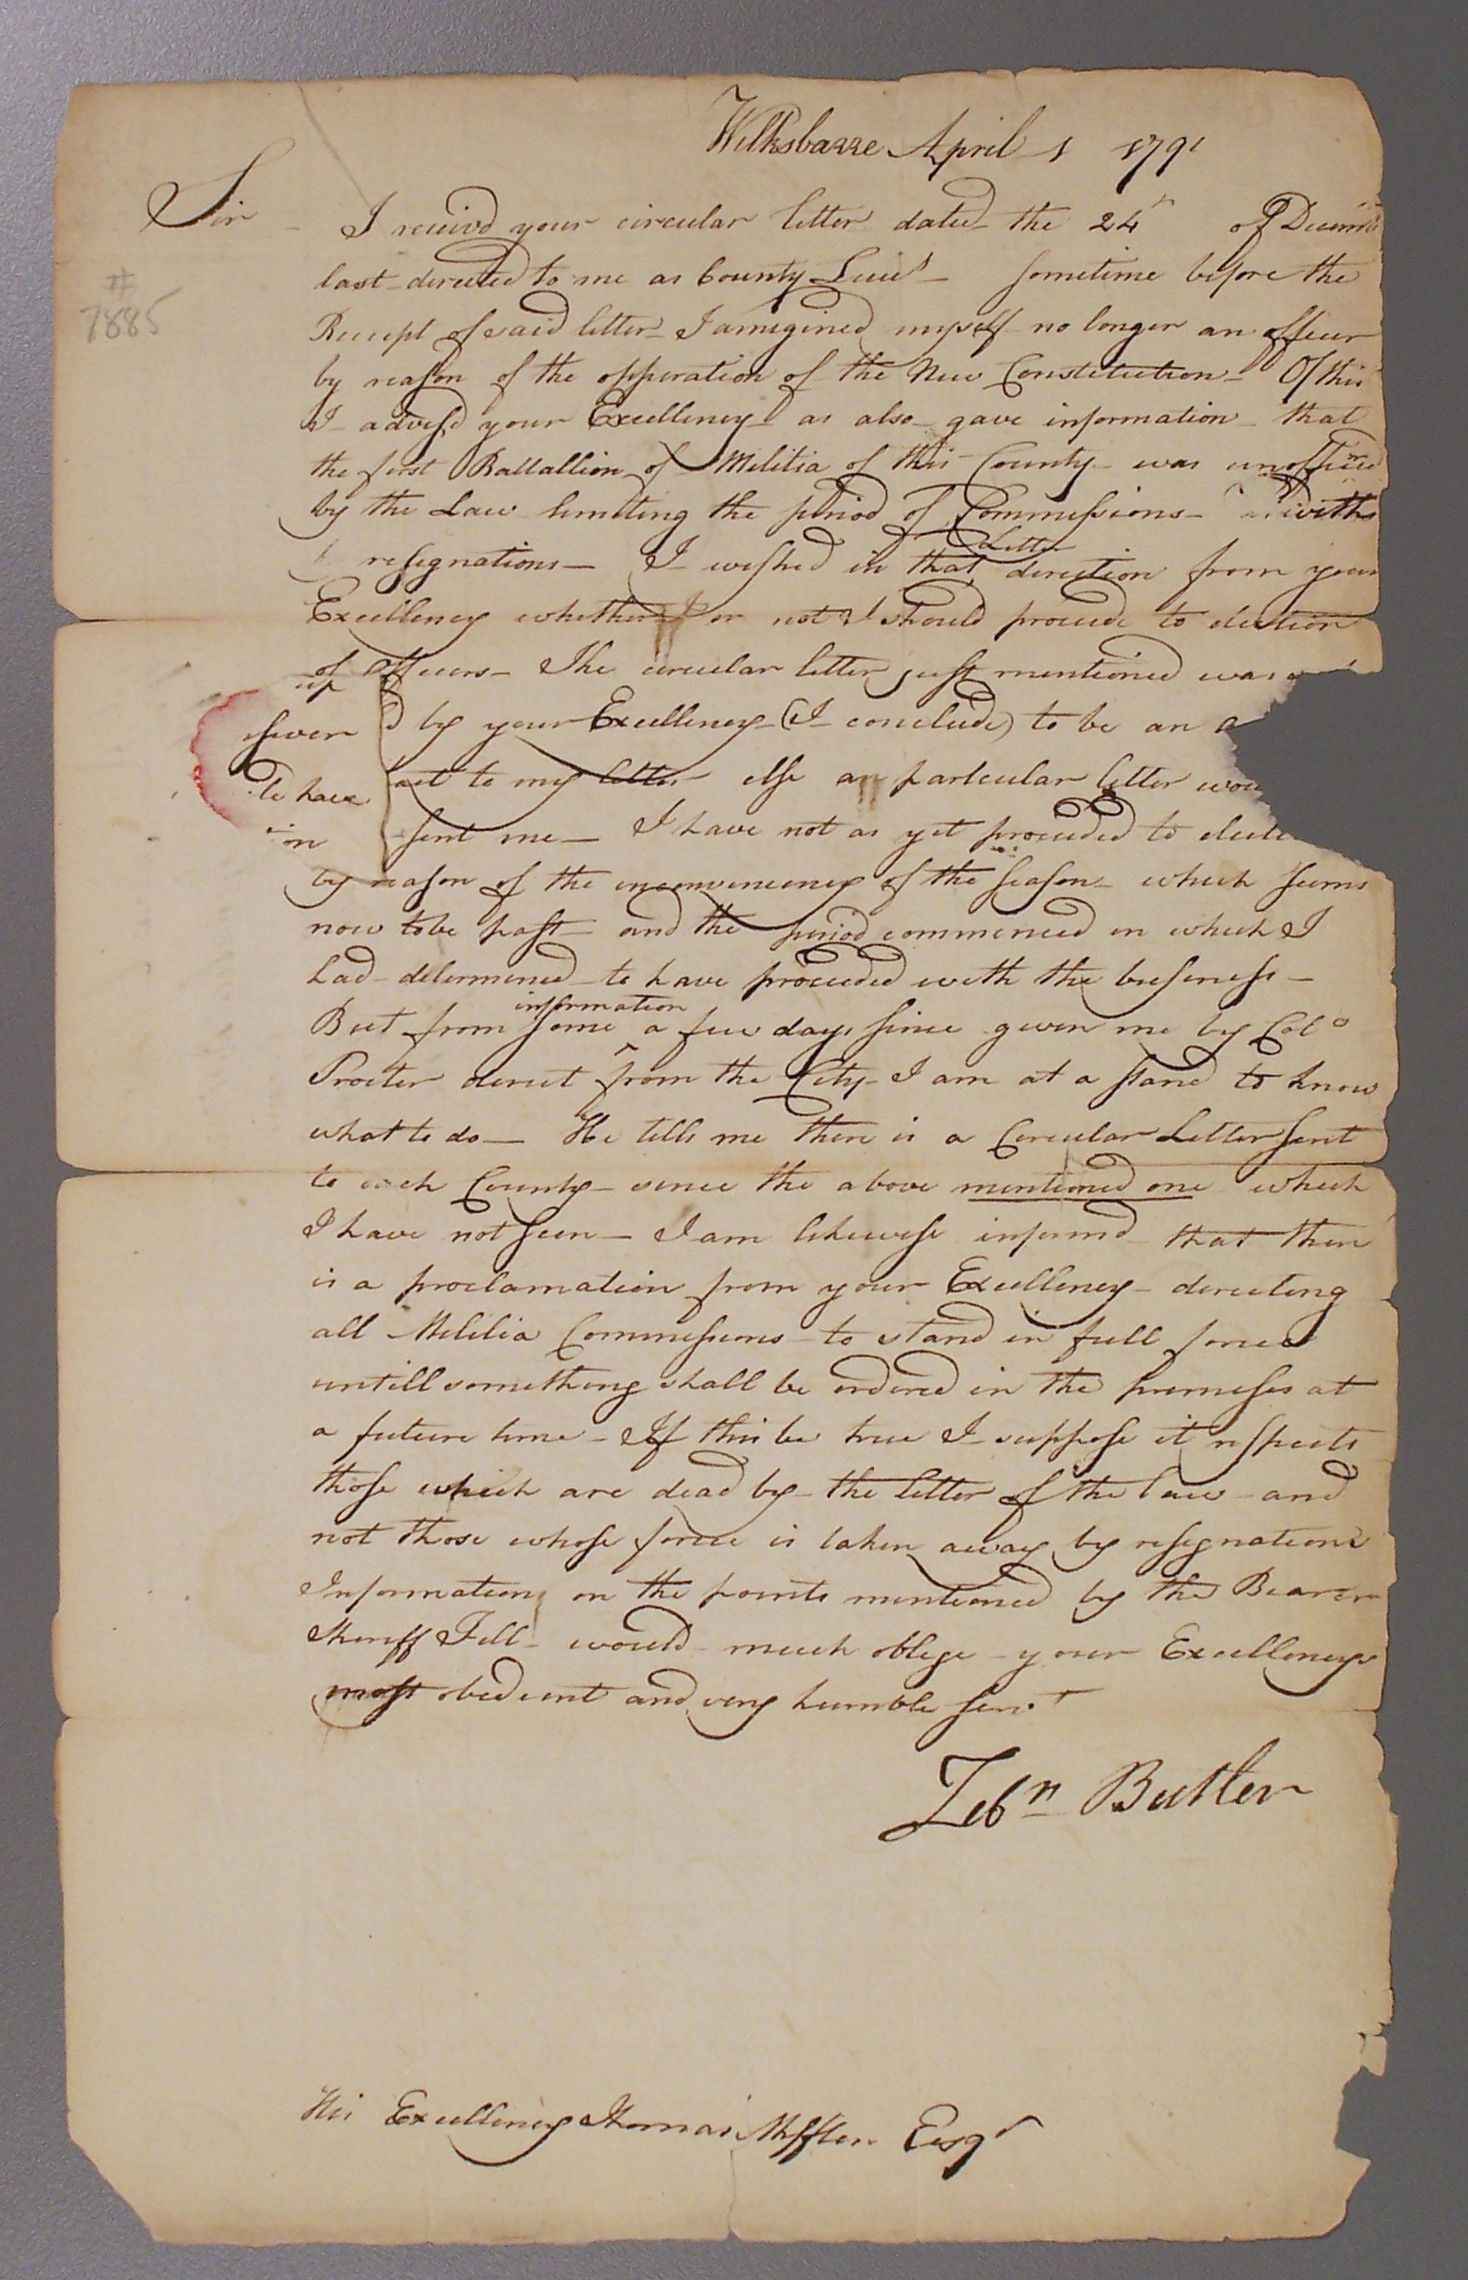 Wilksbarre April 1 1791
Sir - I receivd your circular letter dated the 24th of Decembr
last directed to me as County Lieut - sometime before the
Receipt of said letter I amegined myself no longer an officer
by reason of the opperation of the New Constitution - Of this
I advised your Excellency as also gave information that
the first Battallion of Militia of this County was unofficered
by the Law limiting the period of Commissions - with
resignations - I wished in that Letter direction from your
Excellency whether or not I should proceede to election
of officers - The circular letter just mentioned was
d by your Excellency (I conclude) to be an a
swer
to my letter else an particular letter wou
to have
sent me - I have not as yet proceeded to elect
ion
by reason of the inconveniency of the season which seems
now to be past and the period commenced in which I
had determined to have proceeded with the business -
But from some information a few days since given me by Colo
Procter direct from the City I am at a stand to know
what to do - He tells me there is a Circular Letter sent
to each County since the above mentioned one which
I have not seen - I am likewise informd that there
is a proclamation from your Excellency directing
all Militia Commissions to stand in full force
untill something shall be ordered in the premises at
a future time - If this be true I suppose it respects
those which are dead by the letter of the law and
not those whose force is taken away by resignations
Information on the points mentioned by the Bearer
Sheriff Fell would much oblige your Excellencys
most obedient and very humble servt
Zebn Butler
His Excellency Thomas Mifflin Esqr
#
7885